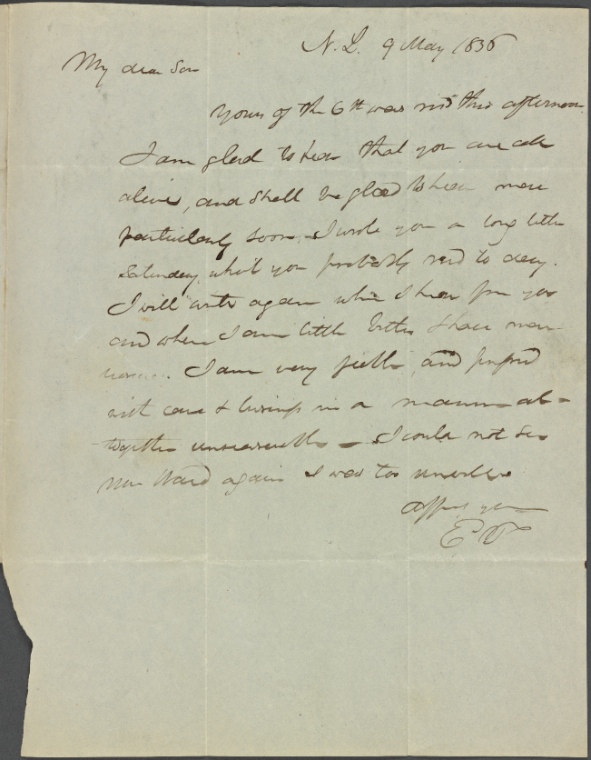 N. L. 9 May 1836
My dear Son
Yours of the 6th was recd this afternoon.
I am glad to hear that you are all
alive, and shall be glad to hear more
particularly soon. I wrote you a long letter
Saturday, which you probably recd to day.
I will write again when I hear from you
and when I am little better & have more
I am very feeble, and pressed
with care & business in a manner al-
together unreasonable — I could not see
Mr Ward again I was too unwell
Affy yours